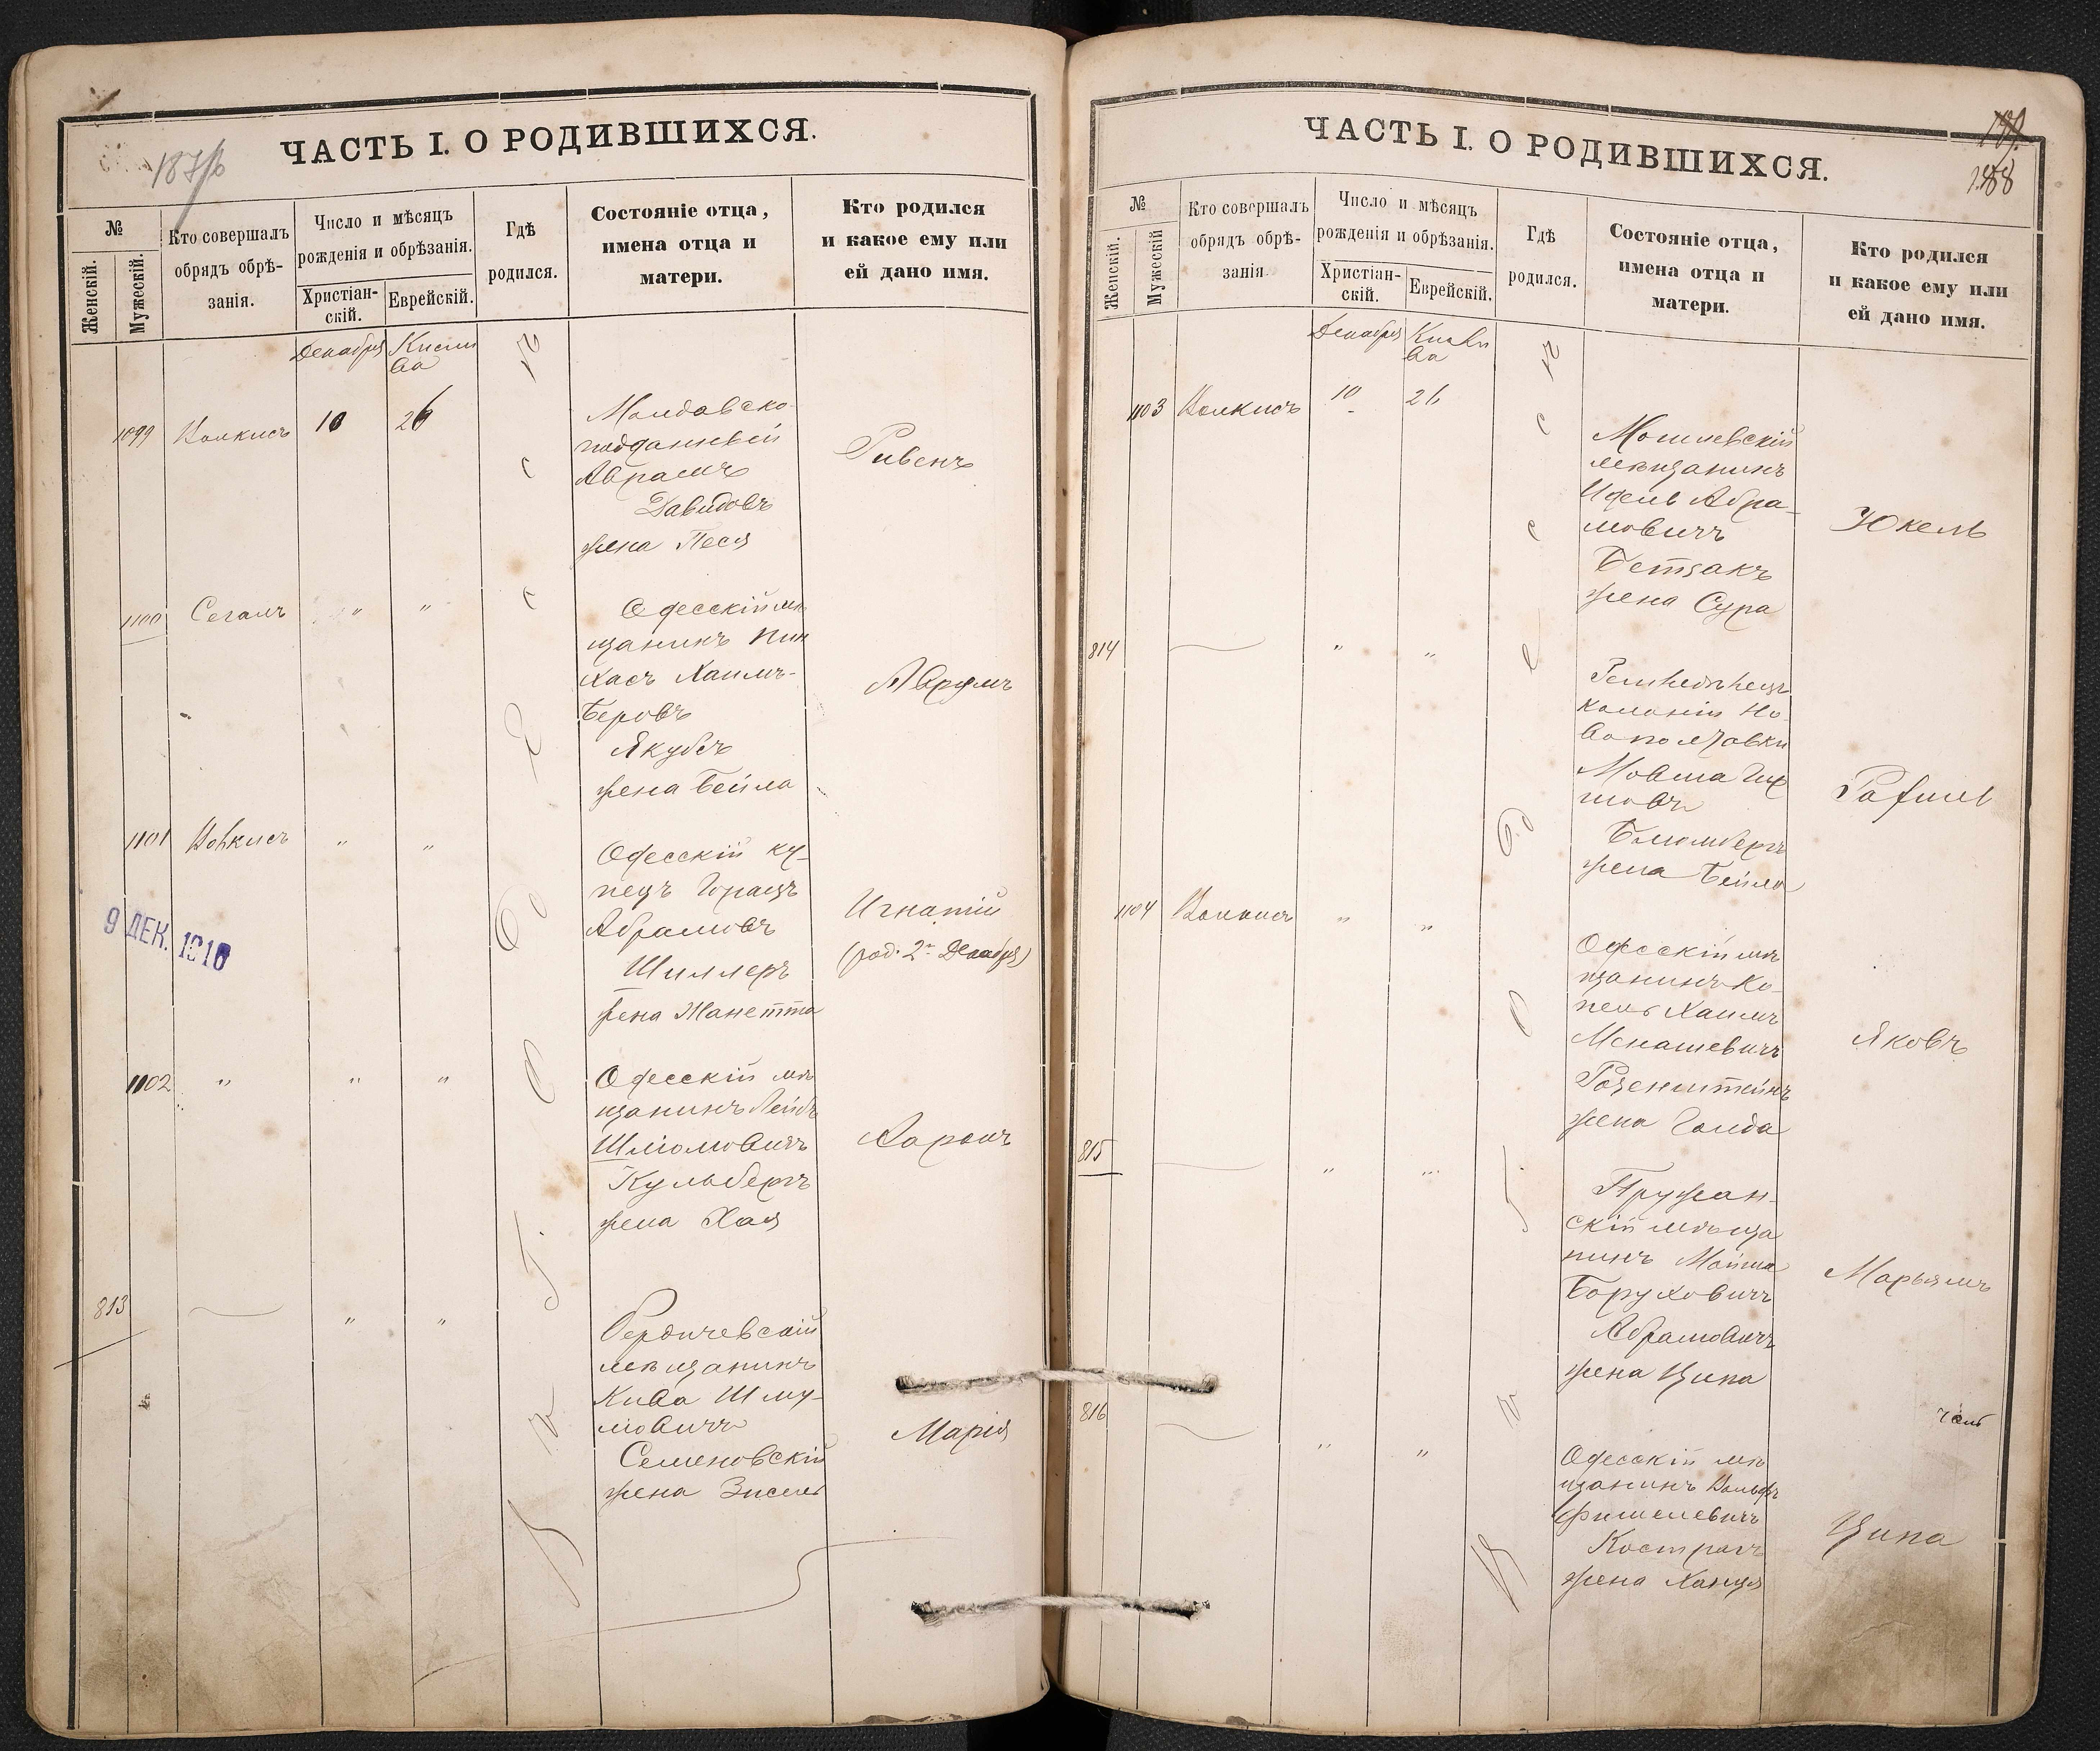 ЧАСТЬ I. О РОДИВШИХСЯ.
№
Женскій.
Мужескій.
Кто совершалъ
обрядъ обрѣ-
занія.
Число и мѣсяцъ
рожденія и обрѣзанія.
Христіан-
скій.
Еврейскій.
Гдѣ
родился.
Состояніе отца,
имена отца и
матери.
Кто родился
и какое ему или
ей дано имя.
Декабря
Кисли
ва
1099
10
26
Молдавско
подданный
Абрамъ
Давидовъ
жена Песя
Ривенъ
1100
Сегалъ
"
"
Одесскій мѣ
щанинъ Пин
хасъ Хаимъ-
Беровъ
Якубсъ
жена Бейла
Аврумъ
1101
"
"
Одесскій ку-
пецъ
Абрамовъ
Шиллеръ
жена Жанетта
Игнатій
(род. 2го Декабря)
9 ДЕК. 1916
1102
"
"
"
Одесскій мѣ
щанинъ Лейбъ
Шліомовичъ
Кульбергъ
жена Хая
Ааронъ
813
"
"
Бердичевскій
мѣщанинъ
Кива Шму-
ліовичъ
Семеновскій
жена Зисель
Марія
ЧАСТЬ I. О РОДИВШИХСЯ.
188
№
Женскій.
Мужескій
Кто совершалъ
обрядъ обрѣ-
занія.
Число и мѣсяцъ
рожденія и обрѣзанія.
Христіан-
скій.
Еврейскій.
Гдѣ
родился.
Состояніе отца,
имена отца и
матери.
Кто родился
и какое ему или
ей дано имя.
Декабря
Кисли
ва
1103
10
26
Могилевскій
мѣщанинъ
Идель Абра-
мовичъ
Бетзакъ
жена Сура
Юкель
814
"
"
колоніи Но-
вополтавки
Мовша
Блюмбергъ
жена Бейла
Рахиль
1104
"
"
Одесскій мѣ
щанинъ Ко-
пель Хаимъ
Менашевичъ
Розенштейнъ
жена Голда
Яковъ
815
"
"
Пружан-
скій мѣща
нинъ Мойша
Боруховичъ
Абрамовичъ
жена Ципа
Марьямъ
816
"
"
Одесскій мѣ
щанинъ Вольфъ
Фишелевичъ
жена Ханця
Ципа